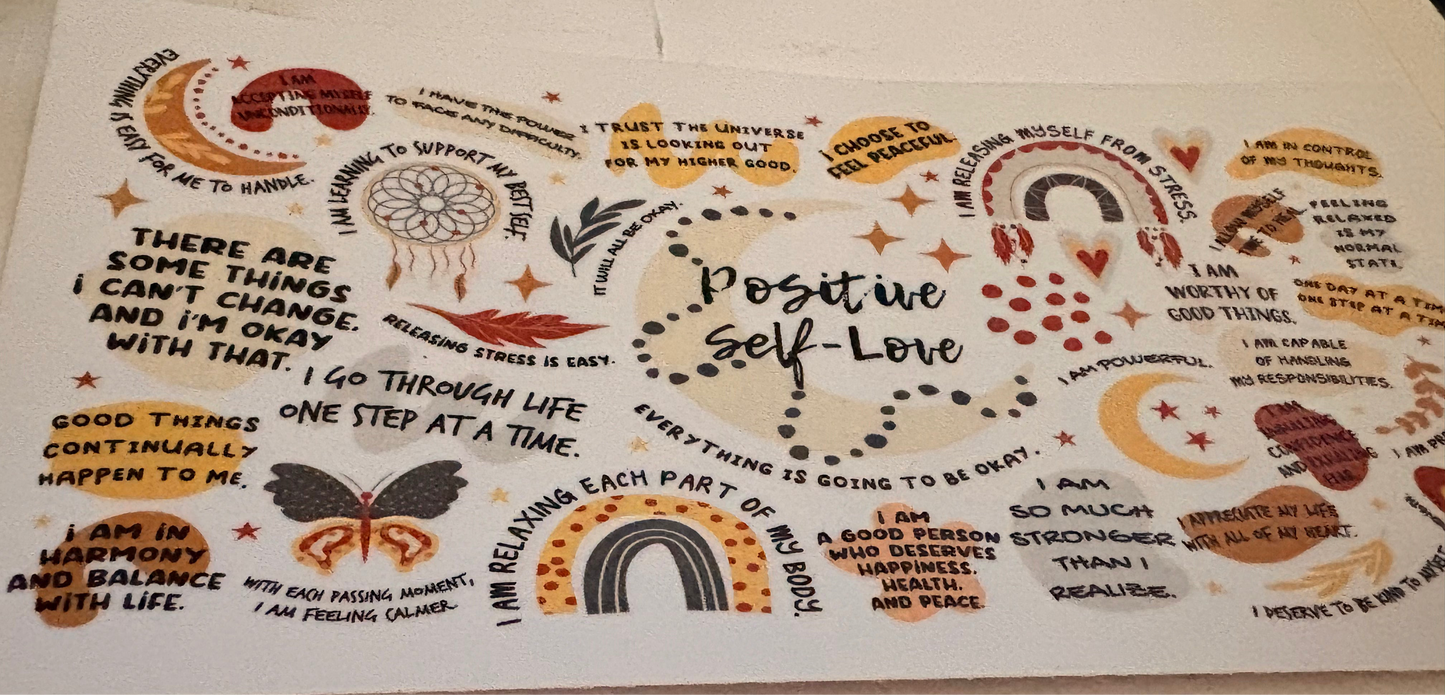 EVERYTHING IS EASY FOR ME TO HANDLE.
I AM
ACCEPTING MYSELF
UNCONDITIONALLY.
I HAVE THE POWER
TO FACE ANY DIFFICULTY.
I TRUST THE UNIVERSE
IS LOOKING OUT
FOR MY HIGHER GOOD.
I CHOOSE TO
FEEL PEACEFUL.
I AM RELEASING MYSELF FROM STRESS.
I AM IN CONTROL
OF MY THOUGHTS.
I AM LEARNING TO SUPPORT MY BEST SELF.
IT WILL ALL BE OKAY.
I ALLOW MYSELF
TIME TO HEAL
FEELING
RELAXED
IS MY
NORMAL
STATE.
THERE ARE
SOME THiNGS
i CAN'T CHANGE.
AND i'M OKAY
WiTH THAT.
Positive
Self-Love
I AM
WORTHY OF
GOOD THINGS.
ONE DAY AT A TIM
ONE STEP AT A TIM
RELEASING STRESS IS EASY.
I GO THROUGH LIFE
ONE STEP AT A TIME.
I AM POWERFUL.
I AM CAPABLE
OF HANDLING
MY RESPONSIBILITIES.
GOOD THINGS
CONTINUALLY
HAPPEN TO ME.
EVERYTHING IS GOING TO BE OKAY.
I AM
INHALING
CONFIDENCE
AND EXHALING
I AM
i AM iN
HARMONY
AND BALANCE
WiTH LiFE.
WITH EACH PASSING MOMENT,
I AM FEELING CALMER
I AM RELAXING EACH PART OF MY BODY.
I AM
A GOOD PERSON
WHO DESERVES
HAPPINESS.
HEALTH.
AND PEACE.
I AM
SO MUCH
STRONGER
THAN I
REALIZE.
I APPRECIATE MY LIFE
WITH ALL OF MY HEART.
I DESERVE TO BE KIND TO MYSELF